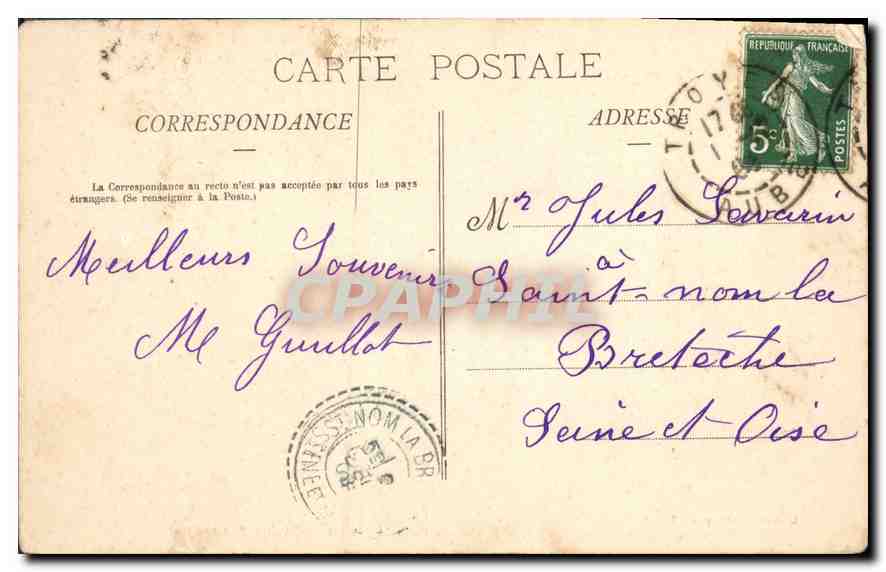 CARTE POSTALE
CORRESPONDANCE
ADRESSE
La Correspondance au recto n'est pas acceptée par tous les pays
étrangers. (Se renseigner à la Poste.)
REPUBLIQUE FRANÇAISE
5c
POSTES
TROY
17
AUB
Meilleurs Souvenirs
M Guillot
Mr Jules Savarin
à
Saint-nom la
Bretèche
Seine et Oise
ST NOM LA BR
CPAPHIL